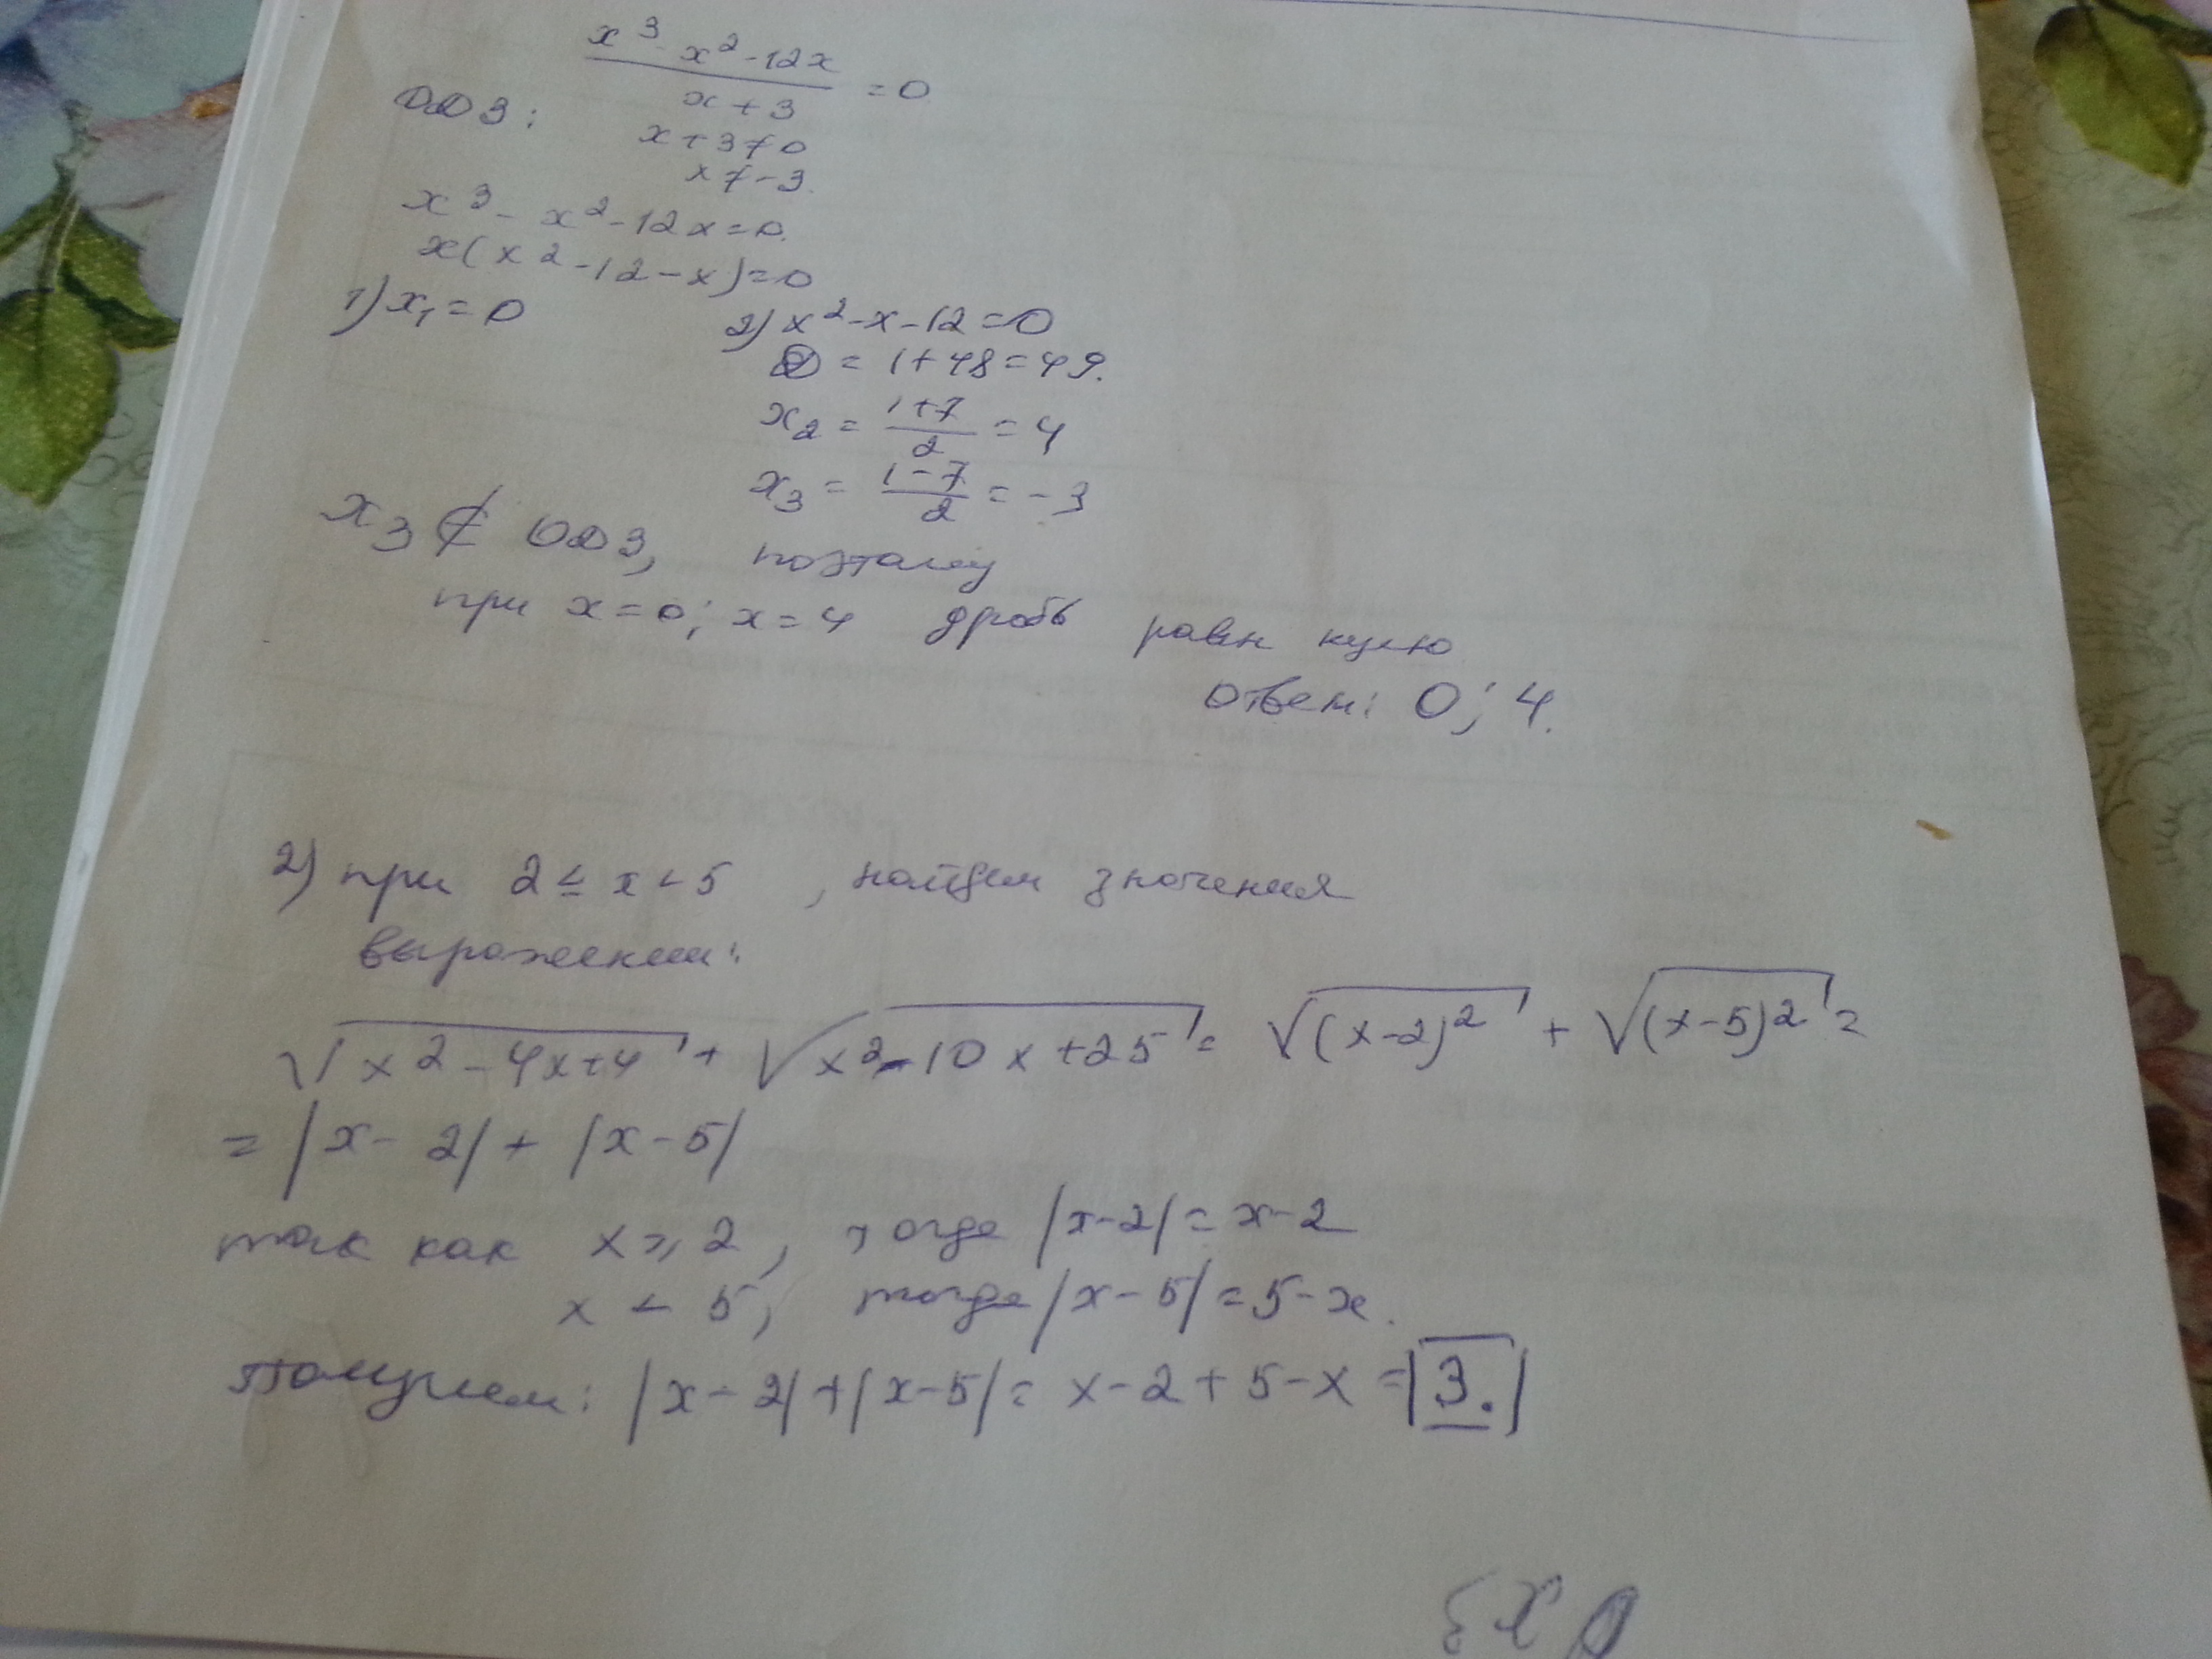 x³ - x² - 12x / x + 3 = 0
ОДЗ: x + 3 ≠ 0
x ≠ -3.
x³ - x² - 12x = 0.
x(x² - 12 - x) = 0
1) x₁ = 0
2) x² - x - 12 = 0
D = 1 + 48 = 49.
x₂ = 1+7 / 2 = 4
x₃ = 1-7 / 2 = -3
x₃ ∉ ОДЗ, поэтому
при x = 0; x = 4 дробь равн нулю
ответ: 0; 4.
2) при 2 ≤ x < 5, найдем значения
выражения:
√(x² - 4x + 4) + √(x² - 10x + 25) = √((x-2)²) + √((x-5)²) =
= |x - 2| + |x - 5|
так как x ≥ 2, тогда |x-2| = x-2
x < 5, тогда |x-5| = 5-x.
Получаем: |x-2| + |x-5| = x-2+5-x = 3.